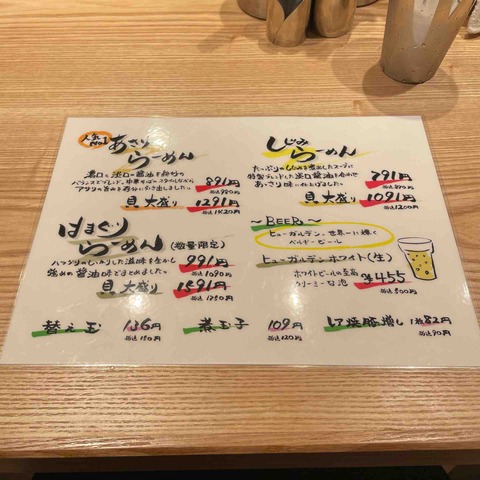 人気No.1
あさり
らーめん
濃口と淡口の醤油を独自の
891円
税込980円
貝大盛り 1291円
税込1420円
はまぐり
らーめん (数量限定)
ハマグリのしっかりした滋味を生かし
強めの醤油味でまとめました。
991円
税込1090円
貝大盛り 1591円
税込1750円
しじみ
らーめん
たっぷりのしじみを煮出したスープに
特製ブレンドした淡口醤油を合わせ
あっさり味に仕上げました。
税込870円
貝大盛り 1091円
税込1200円
〜BEER〜
ヒューガルデン、世界一に輝く
ベルギービール
ヒューガルデンホワイト(生)
ホワイトビールの至高
クリーミーな泡
¥455
税込500円
替え玉 136円
税込150円
煮玉子 109円
税込120円
焼豚増し 1枚82円
税込90円